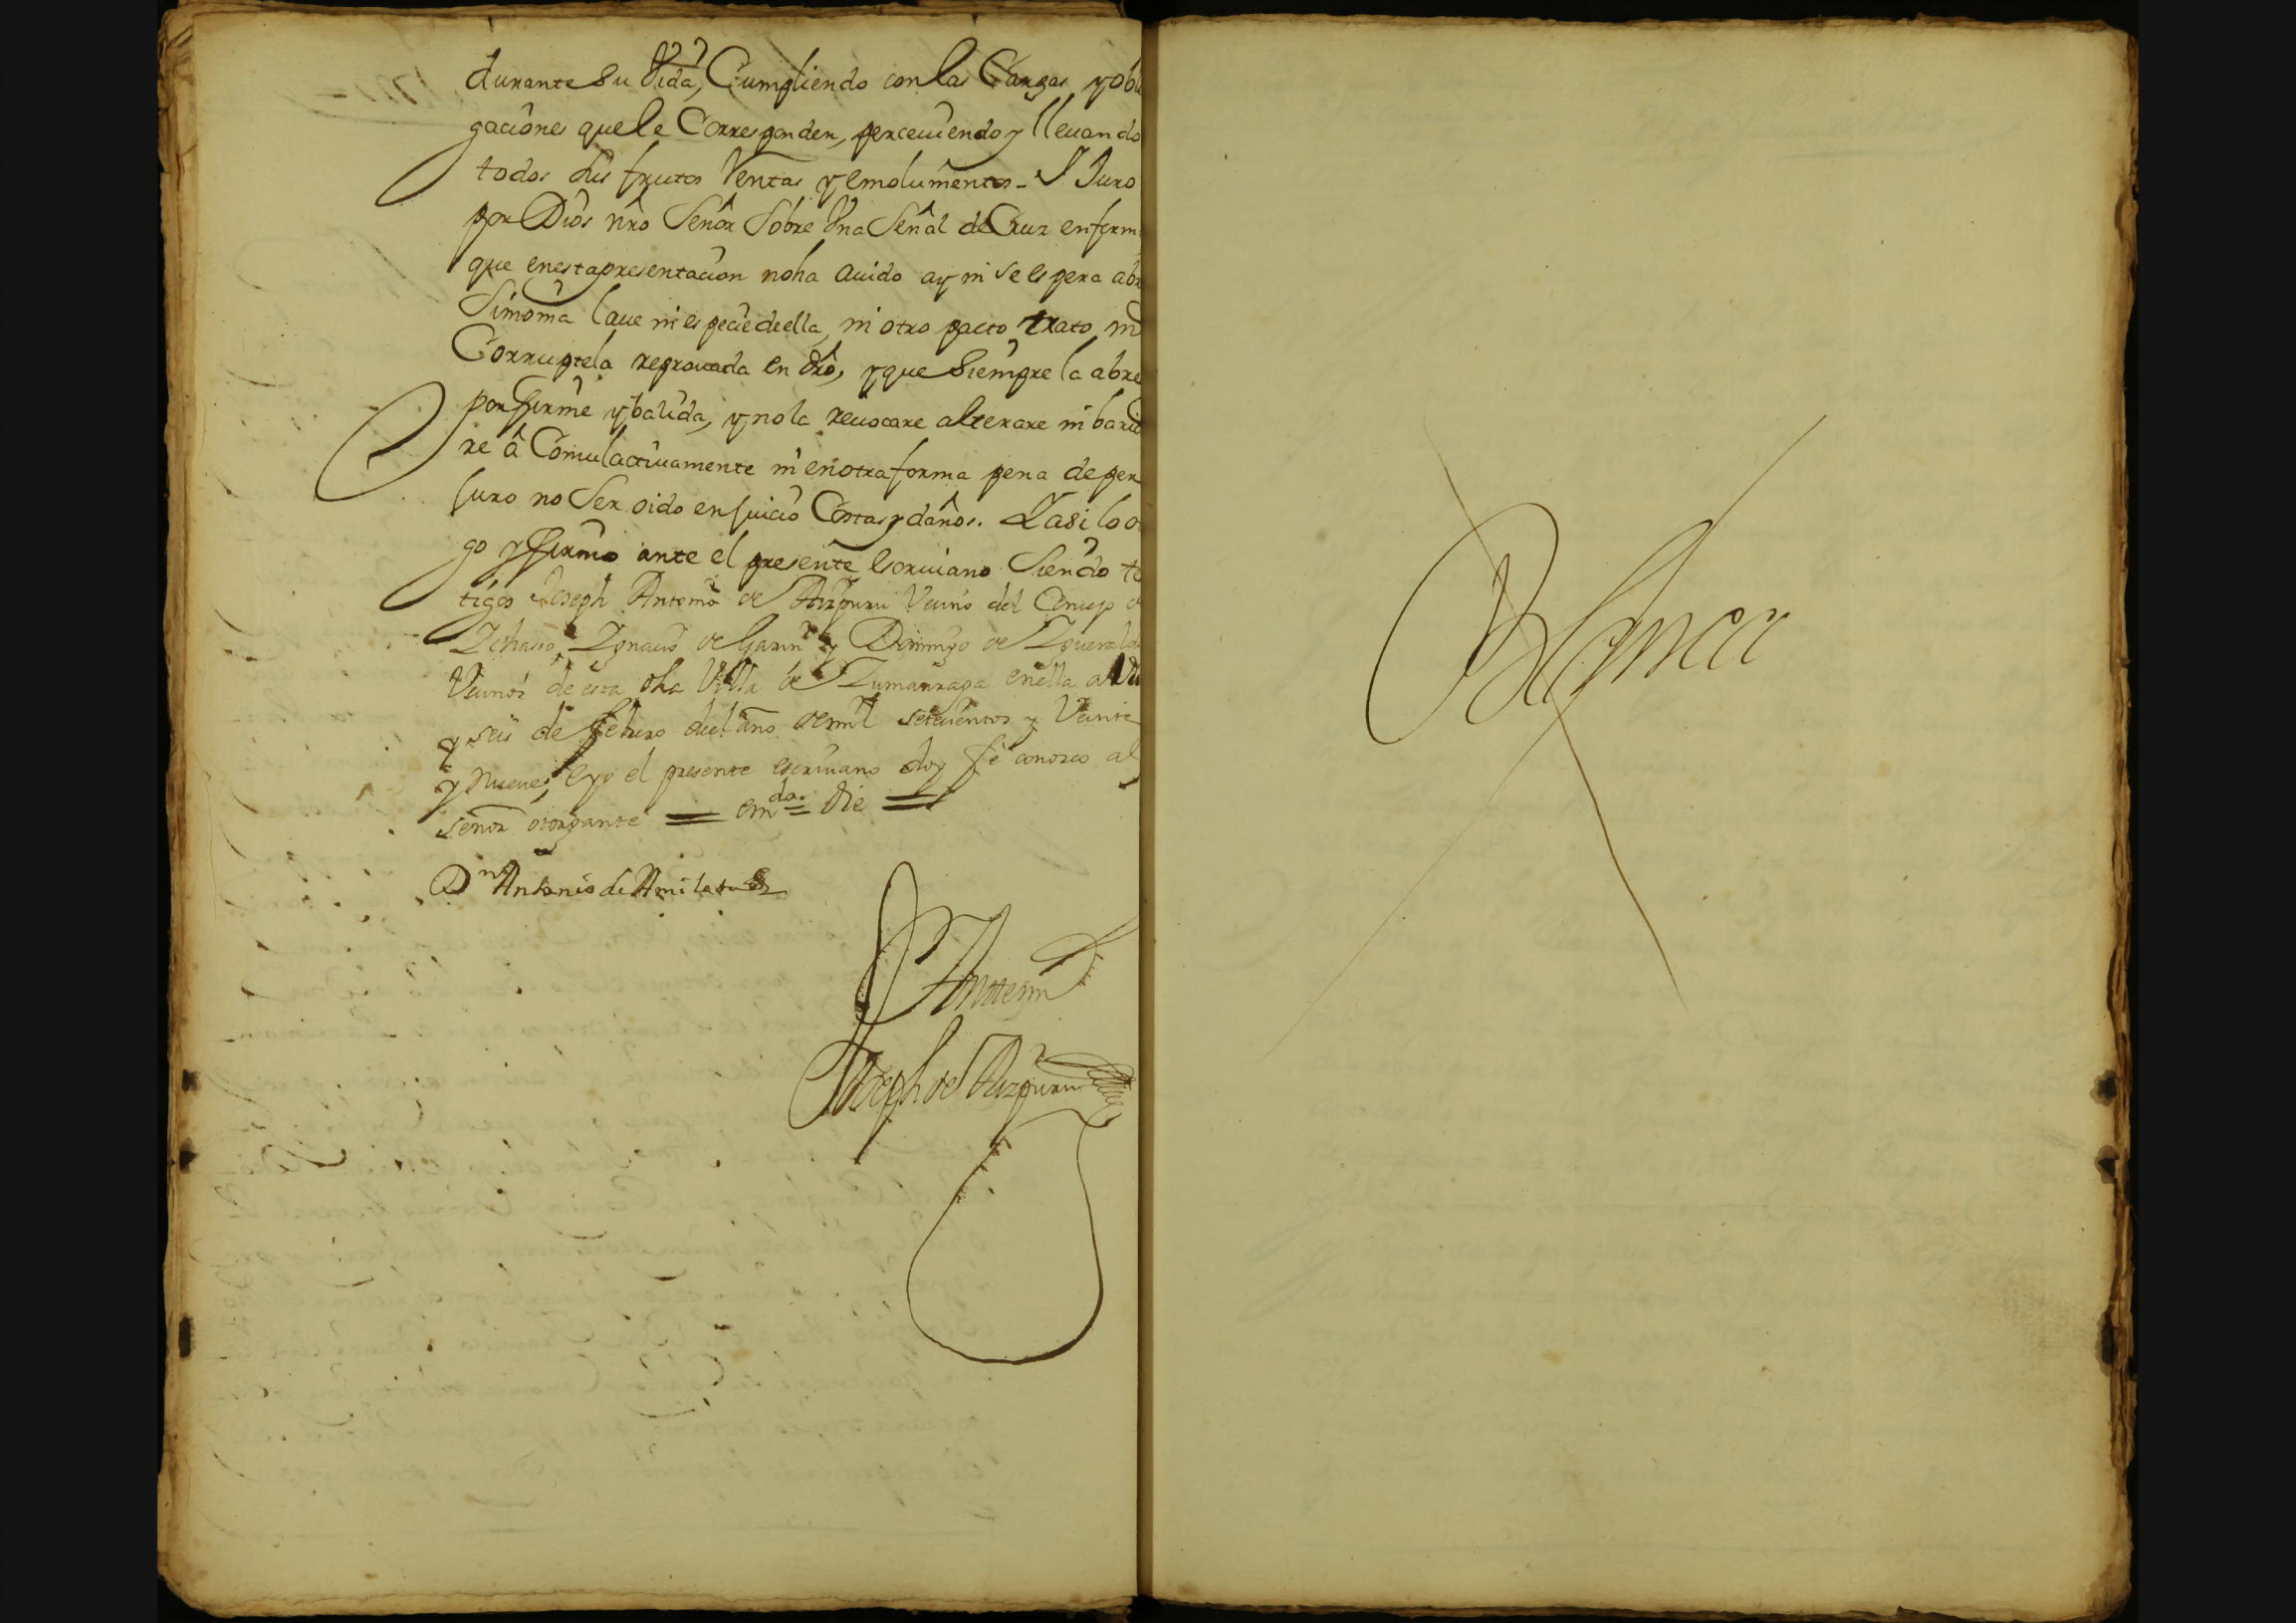 durante su Vida, Cumpliendo con las Cargas y obli
gaciones que le Corresponden, perceuiendo y lleuando
todos sus frutos Rentas y emolumentos - I Juro
por Dios nrõ Señor Sobre Vna Señal de Cruz en form
que en esta presentacion no ha auido ay ni se espera abr
Simonia laue ni especie de ella, ni otro pacto trato ni
Corruptela reprouada en dro, y que Siempre la abre
por firme y balida, y no la reuocare alterare ni bari
re â Comulactiuamente ni en otra forma pena de per
juro no Ser oido en juicio Costas y daños. I asi lo o
go y firmo ante el presente escriuano Siendo te
tigos Joseph Antonio de Aizpuru Vecino del Concejo d
Ichaso, Ignacio de Garin y Domingo de
Vecinos de esta dha Villa de Zumarraga en ella a
y seis de febrero del año de mil setecientos y Veinte
y nueue, e yo el presente escriuano doy fe conozco al
señor otorgante = emdo = die =
Dn Antonio de Amilatu
Ante mi
Joseph de Aizpuru
Blanca